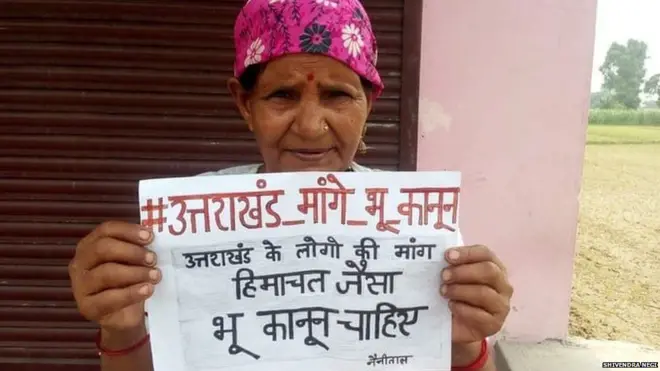 #उत्तराखंड_मांगे_भू_कानून
उत्तराखंड के लोगो की मांग
हिमाचल जैसा
भू कानून चाहिए
नैनीताल
SHIVENDRA NEGI